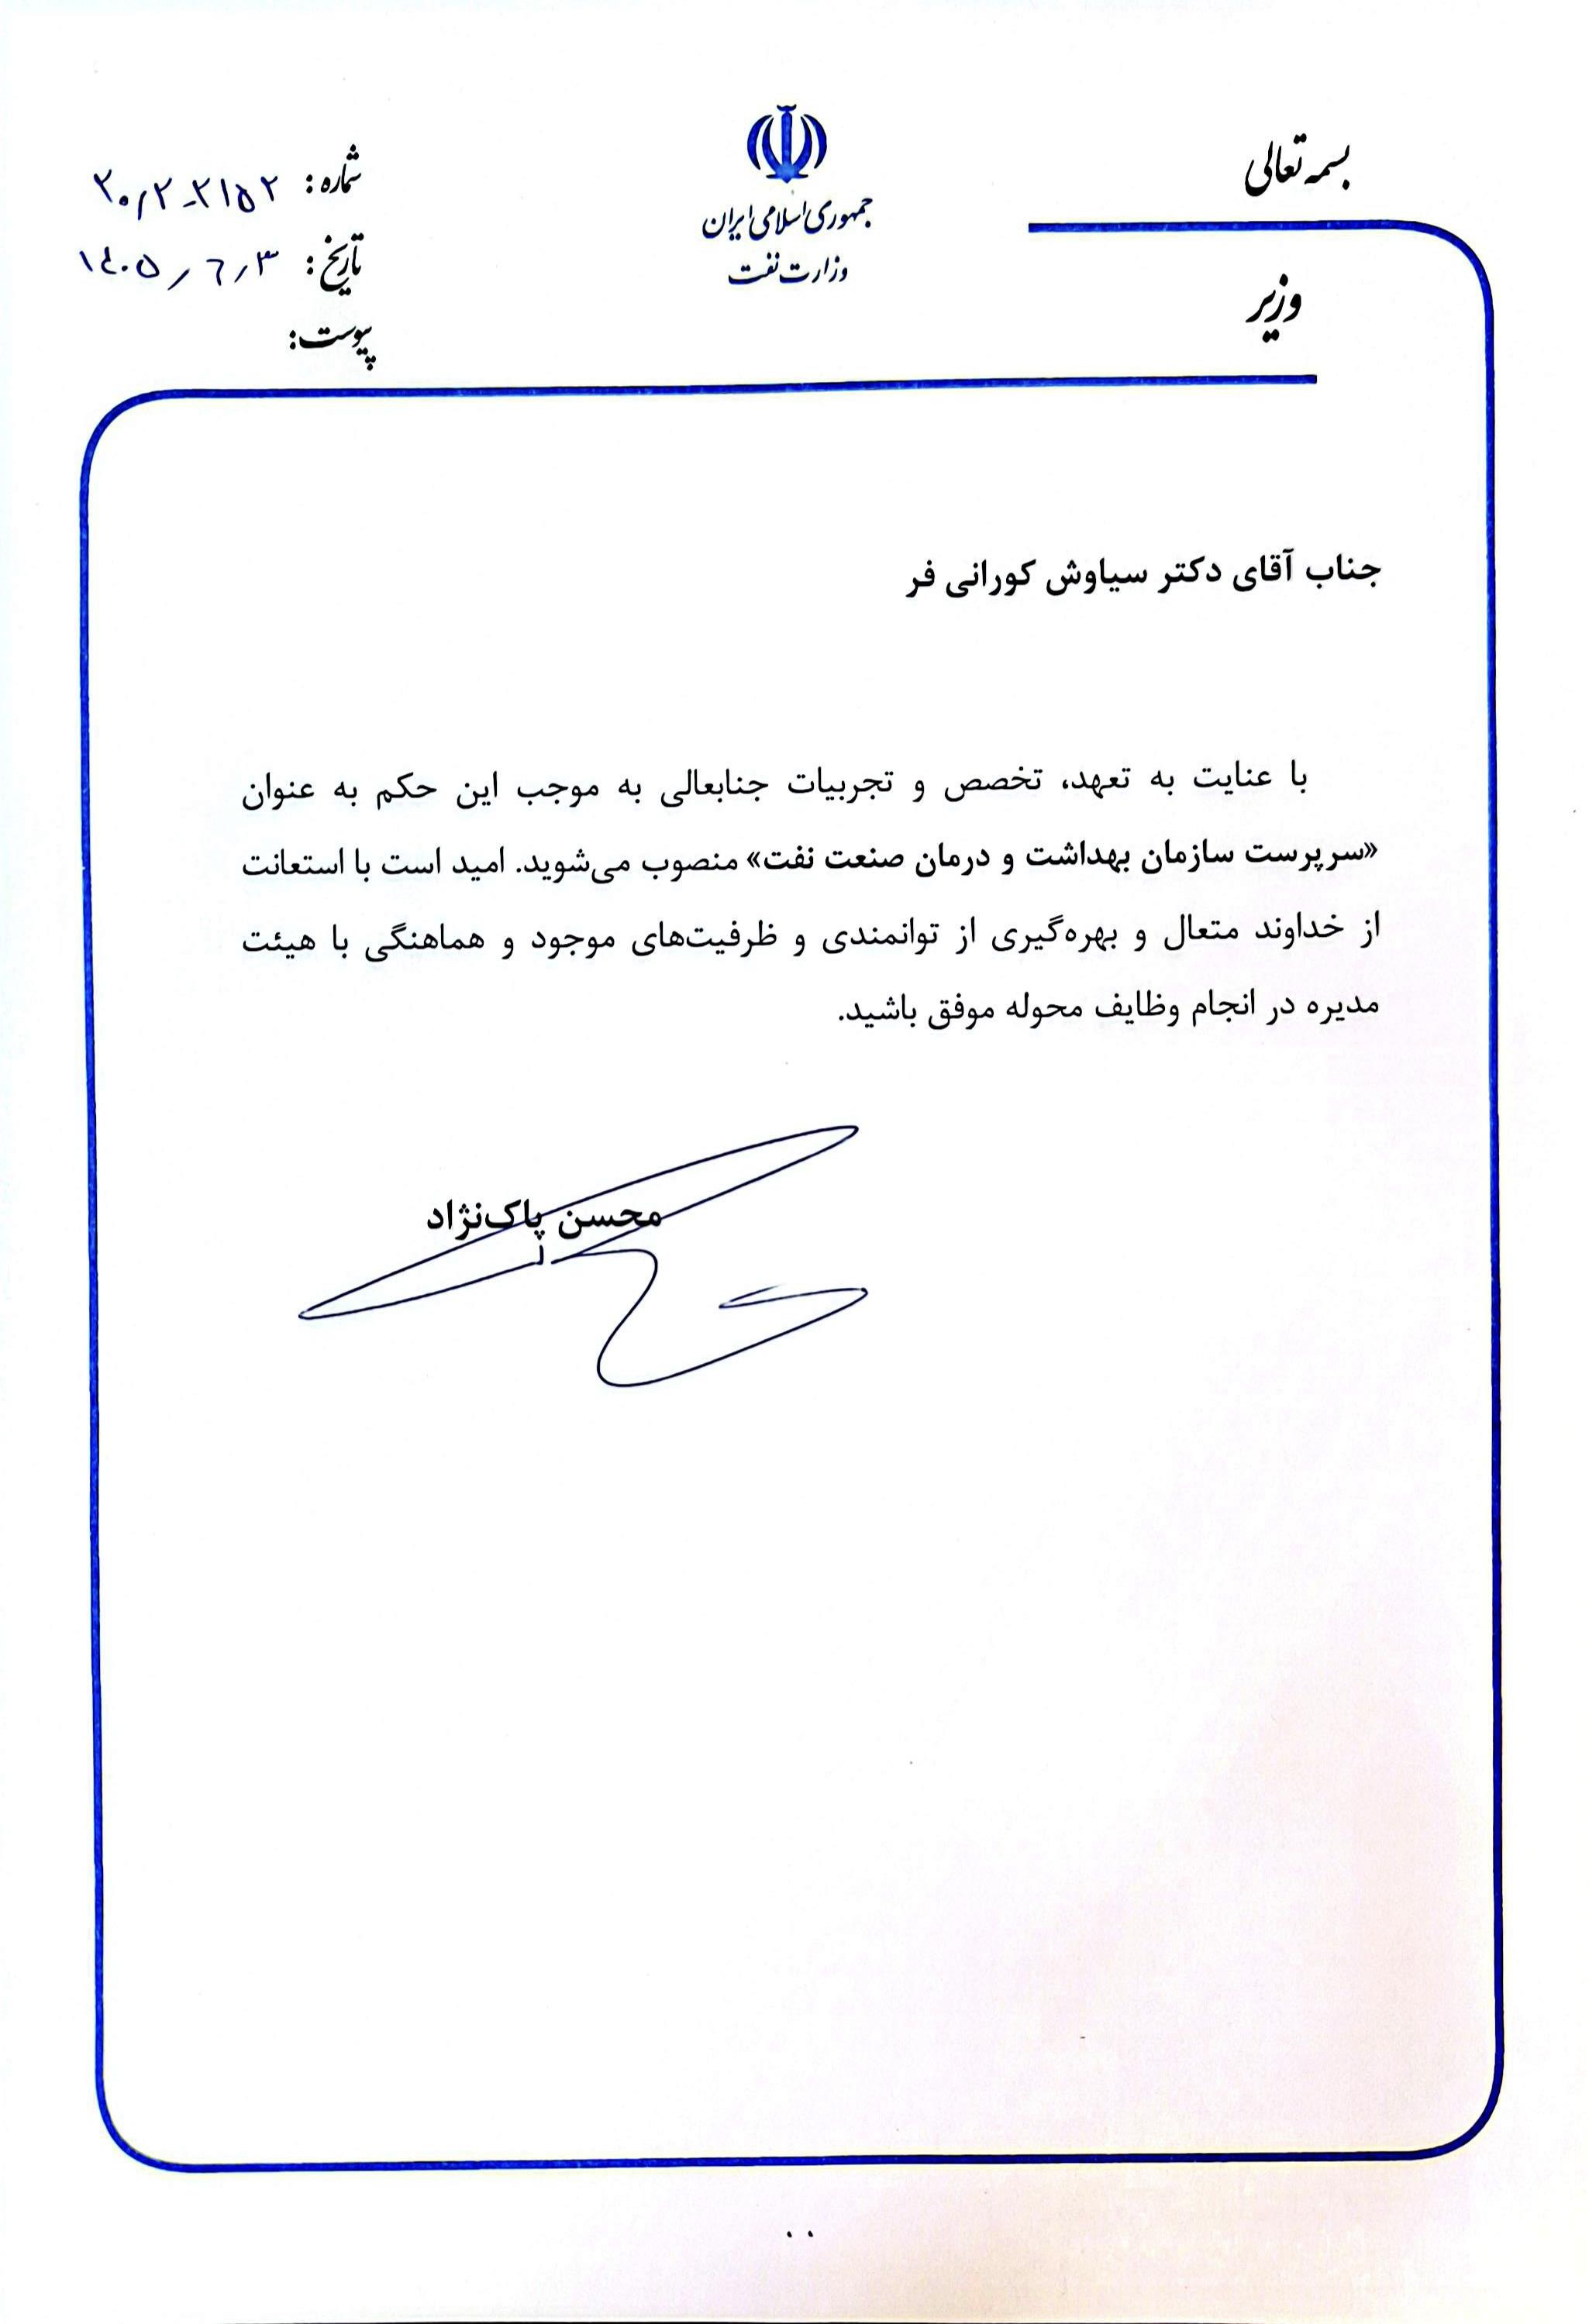 بسمه تعالی
جمهوری اسلامی ایران
وزارت نفت
وزیر
شماره: ۲۰/۲-۲۱۵۲
تاریخ: ۱۴۰۵/۶/۳
پیوست:
جناب آقای دکتر سیاوش کورانی فر
با عنایت به تعهد، تخصص و تجربیات جنابعالی به موجب این حکم به عنوان
«سرپرست سازمان بهداشت و درمان صنعت نفت» منصوب می‌شوید. امید است با استعانت
از خداوند متعال و بهره‌گیری از توانمندی و ظرفیت‌های موجود و هماهنگی با هیئت
مدیره در انجام وظایف محوله موفق باشید.
محسن پاک‌نژاد